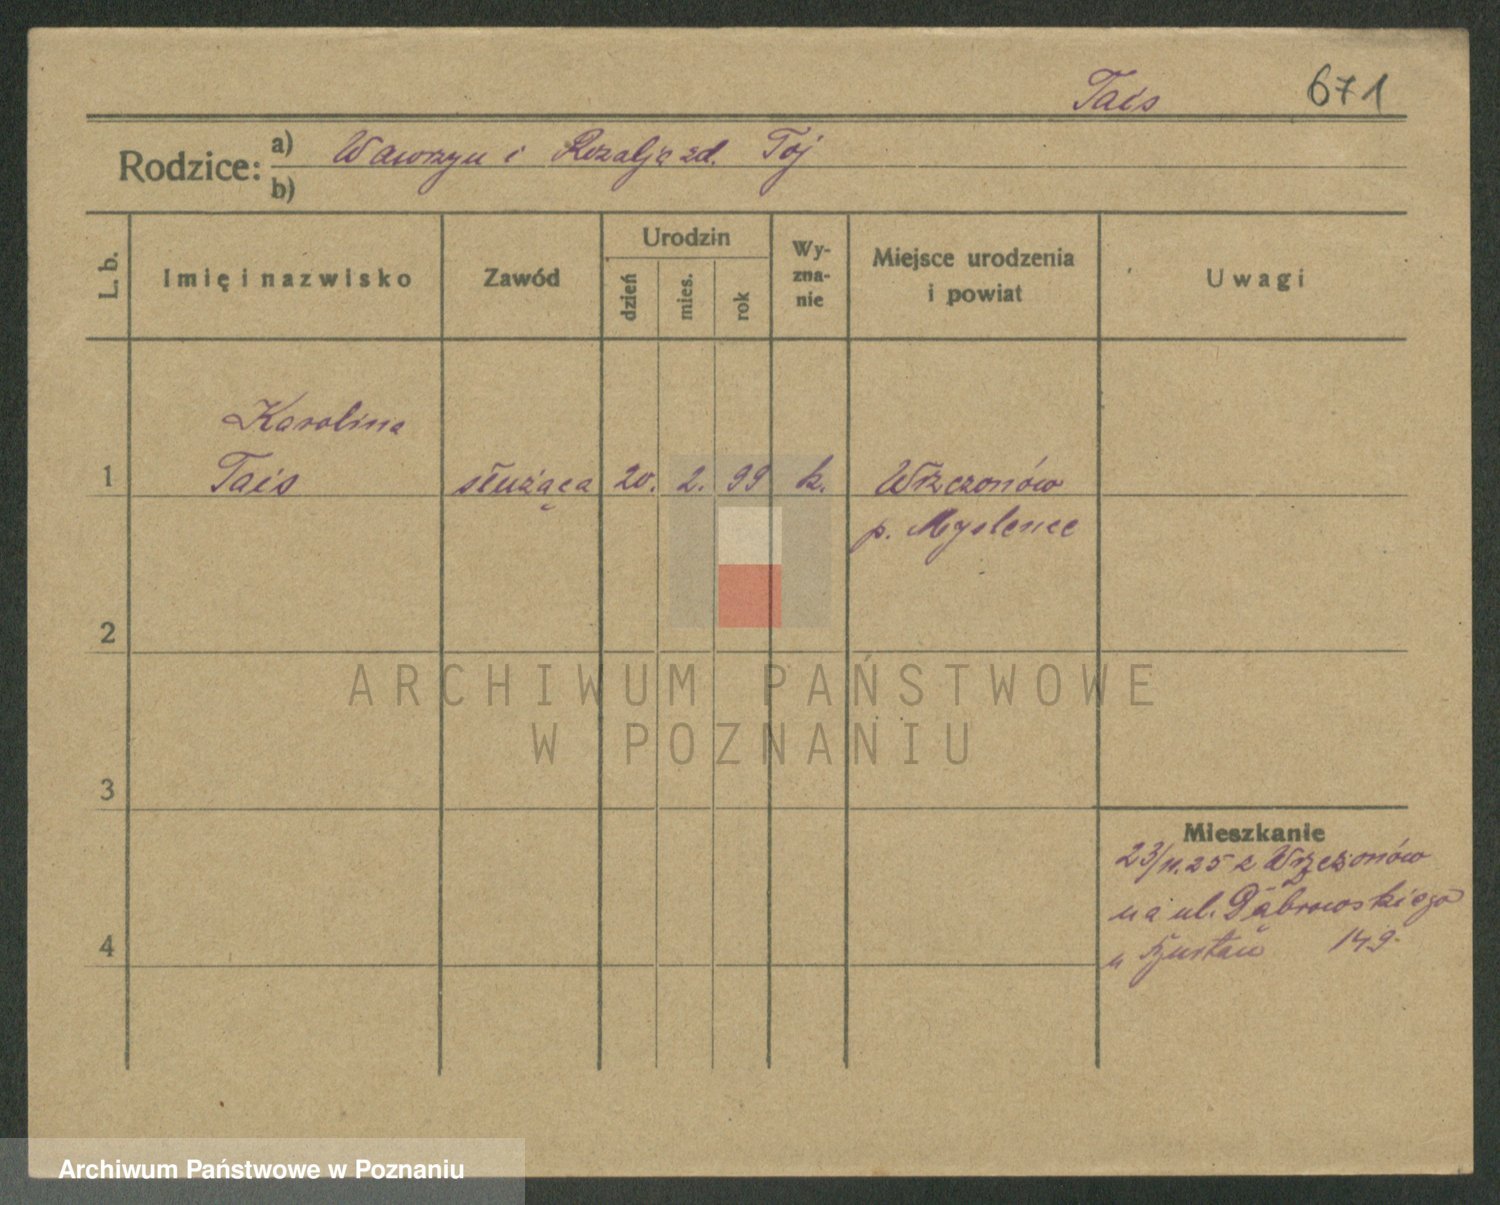 Tais 671
Rodzice: a) Wawrzyn i Rozalja zd. Tój
b)
L. b. Imię i nazwisko Zawód Urodzin dzień mies. rok Wyznanie Miejsce urodzenia i powiat Uwagi
Karolina
1 Tais służąca 20. 2. 99 k. Wrzczonów
p. Myslenice
2
ARCHIWUM PAŃSTWOWE
W POZNANIU
3
Mieszkanie
23/11.25 z Wrzczonów
na ul. Dąbrowskiego
4 u 149.
Archiwum Państwowe w Poznaniu